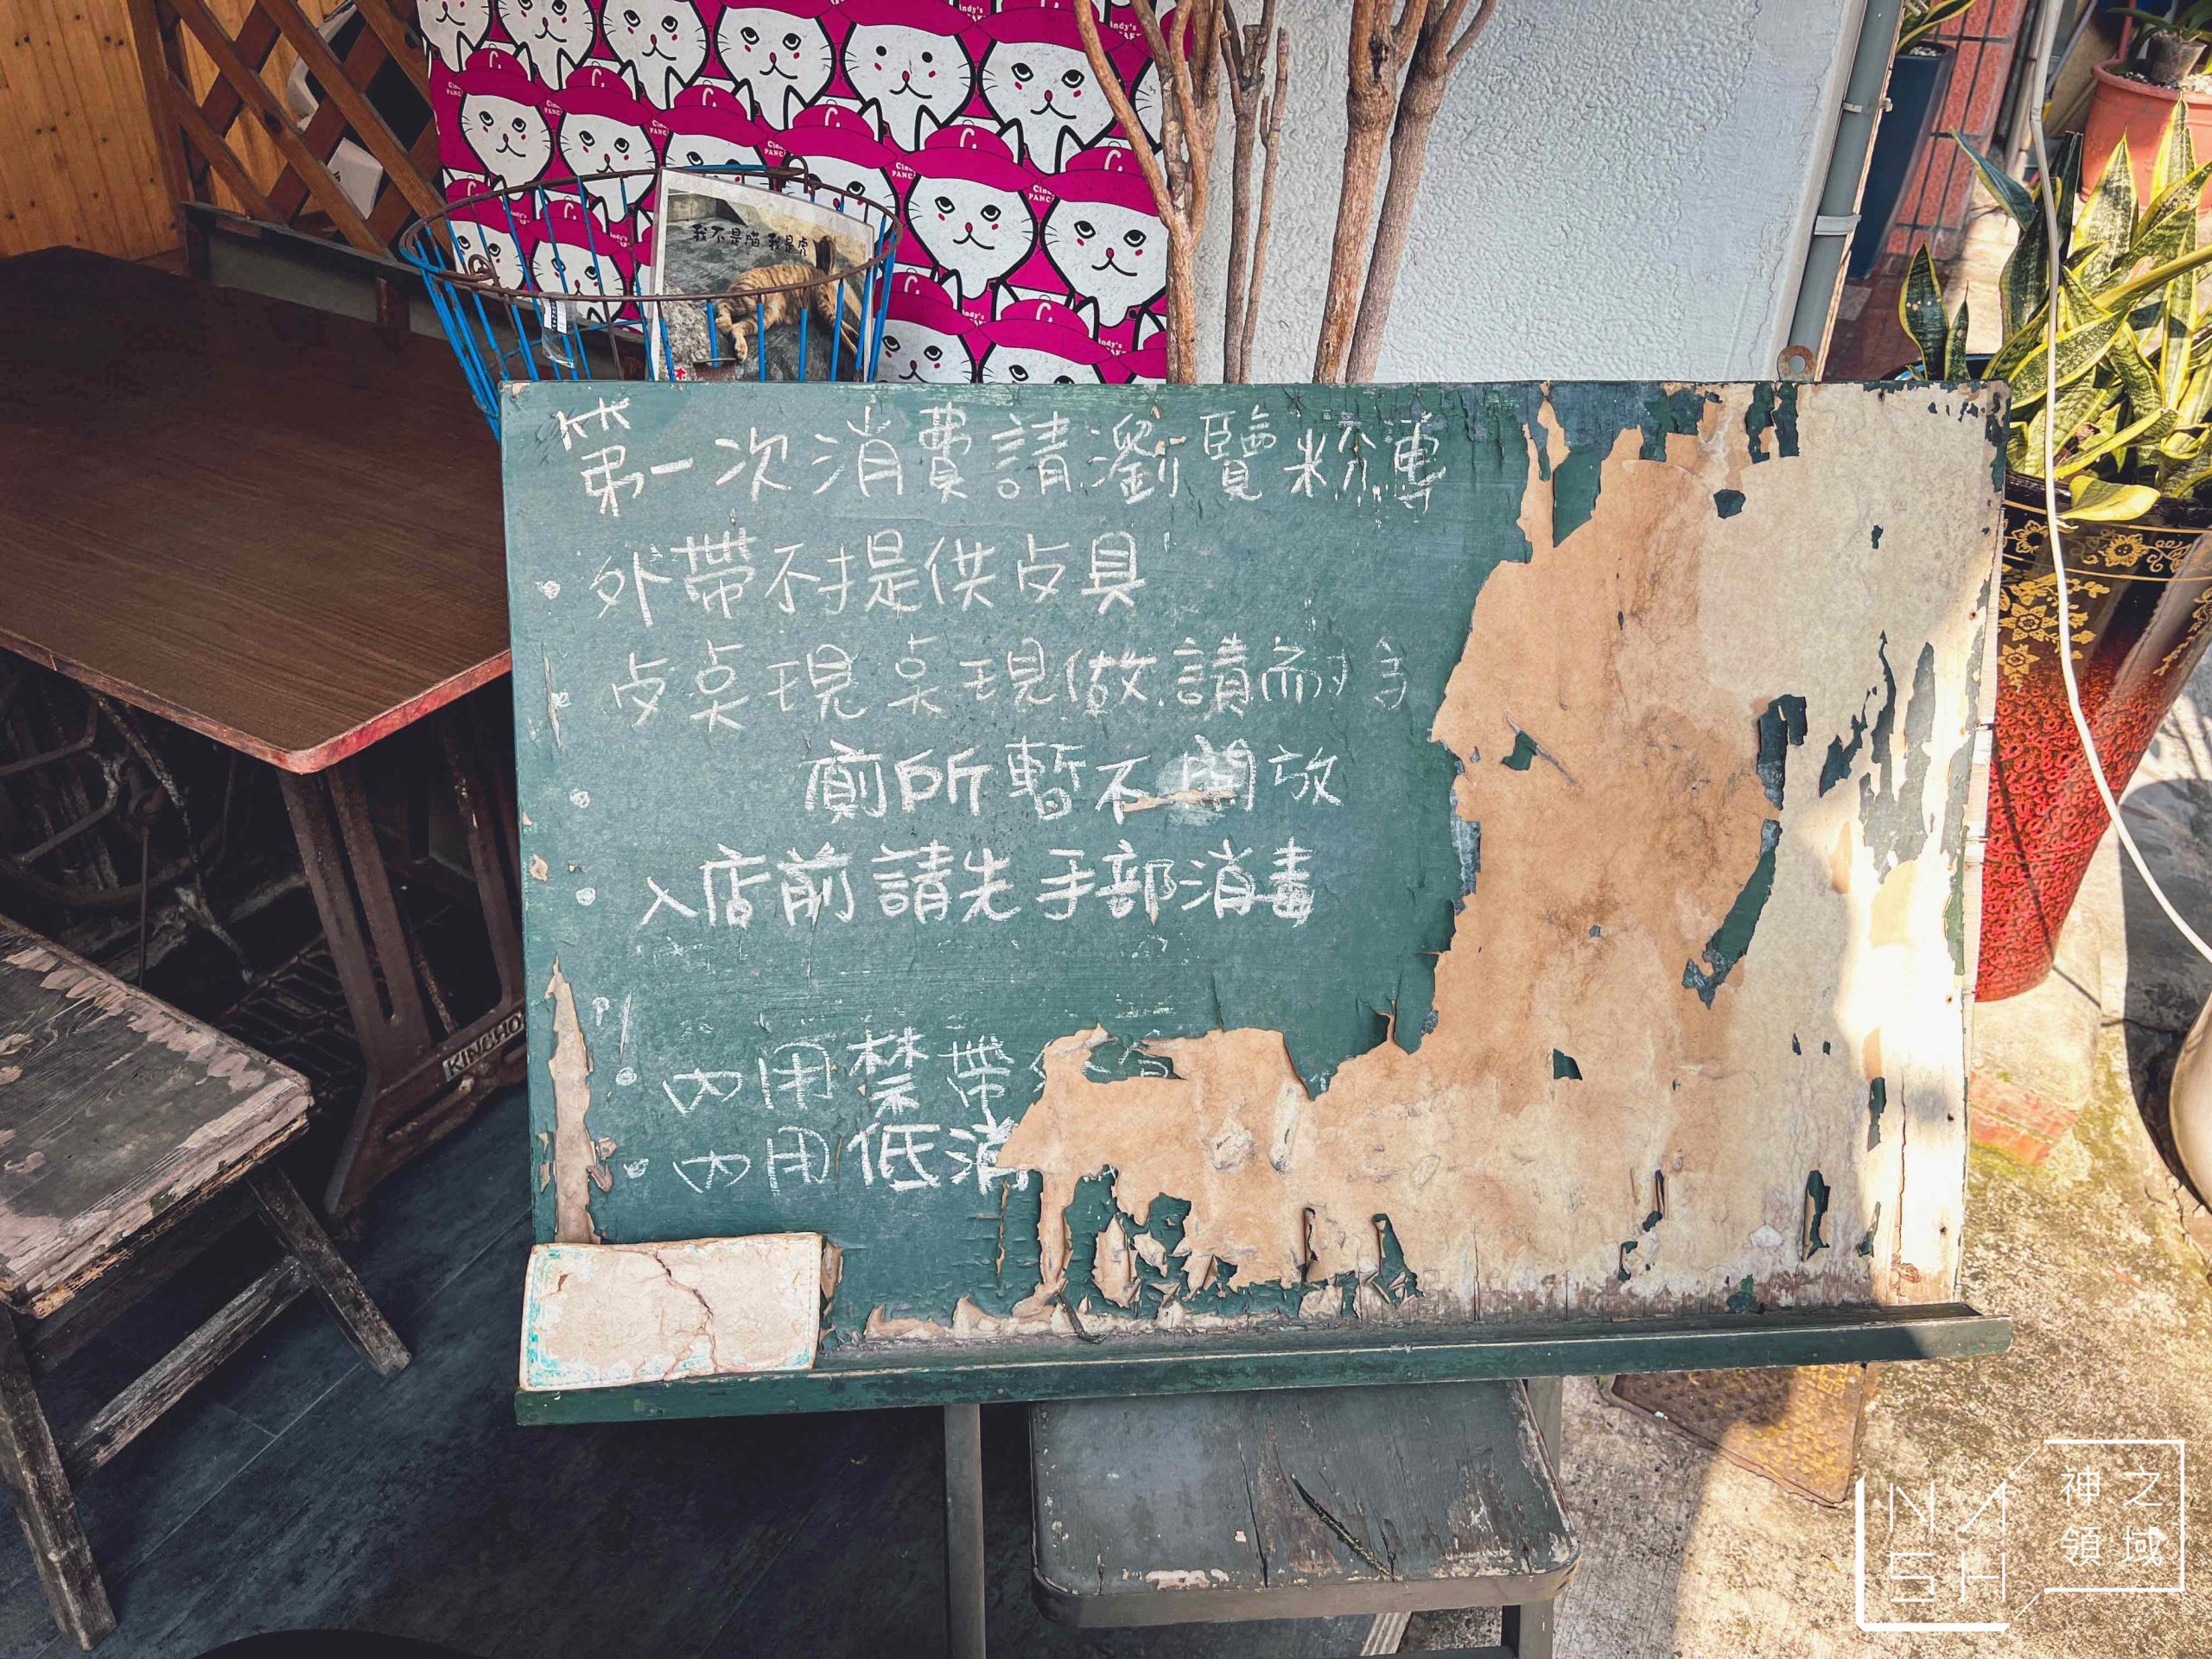 我不是喵 我是虎
第一次消費請瀏覽粉專
外帶不提供占具
占桌現桌現做請耐
廁所暫不開放
入店前請先手部消毒
內用禁帶
內用低消
KINGHO
NASH
神之
領域